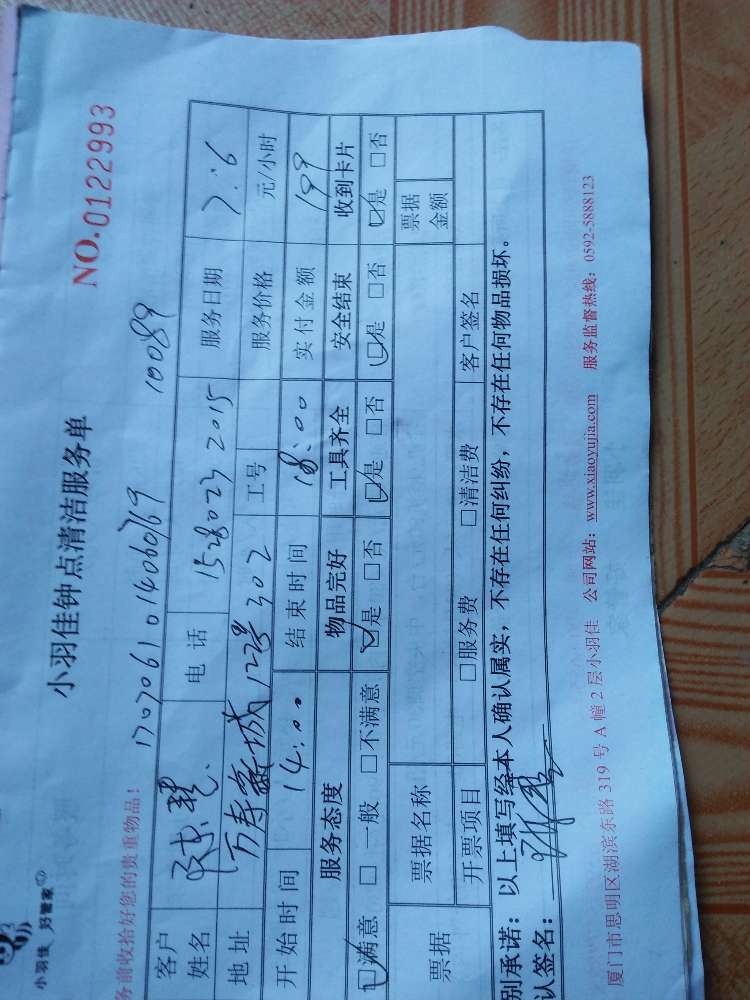 小羽佳 好管家
小羽佳钟点清洁服务单
NO.0122993
务前收拾好您的贵重物品!
10089
客户姓名
电话 15280232015
服务日期 7.6
地址 万寿新城12号302
工号
服务价格 元/小时
开始时间 14:00
结束时间 18:00
实付金额 199
服务态度 物品完好 工具齐全 安全结束 收到卡片
☑满意 □一般 □不满意 ☑是 □否 ☑是 □否 ☑是 □否 ☑是 □否
票据 票据名称 票据金额
开票项目 □服务费 □清洁费 客户签名
别承诺:以上填写经本人确认属实,不存在任何纠纷,不存在任何物品损坏。
认签名:
厦门市思明区湖滨东路 319 号 A 幢 2 层小羽佳 公司网站:www.xiaoyujia.com 服务监督热线:0592-5888123